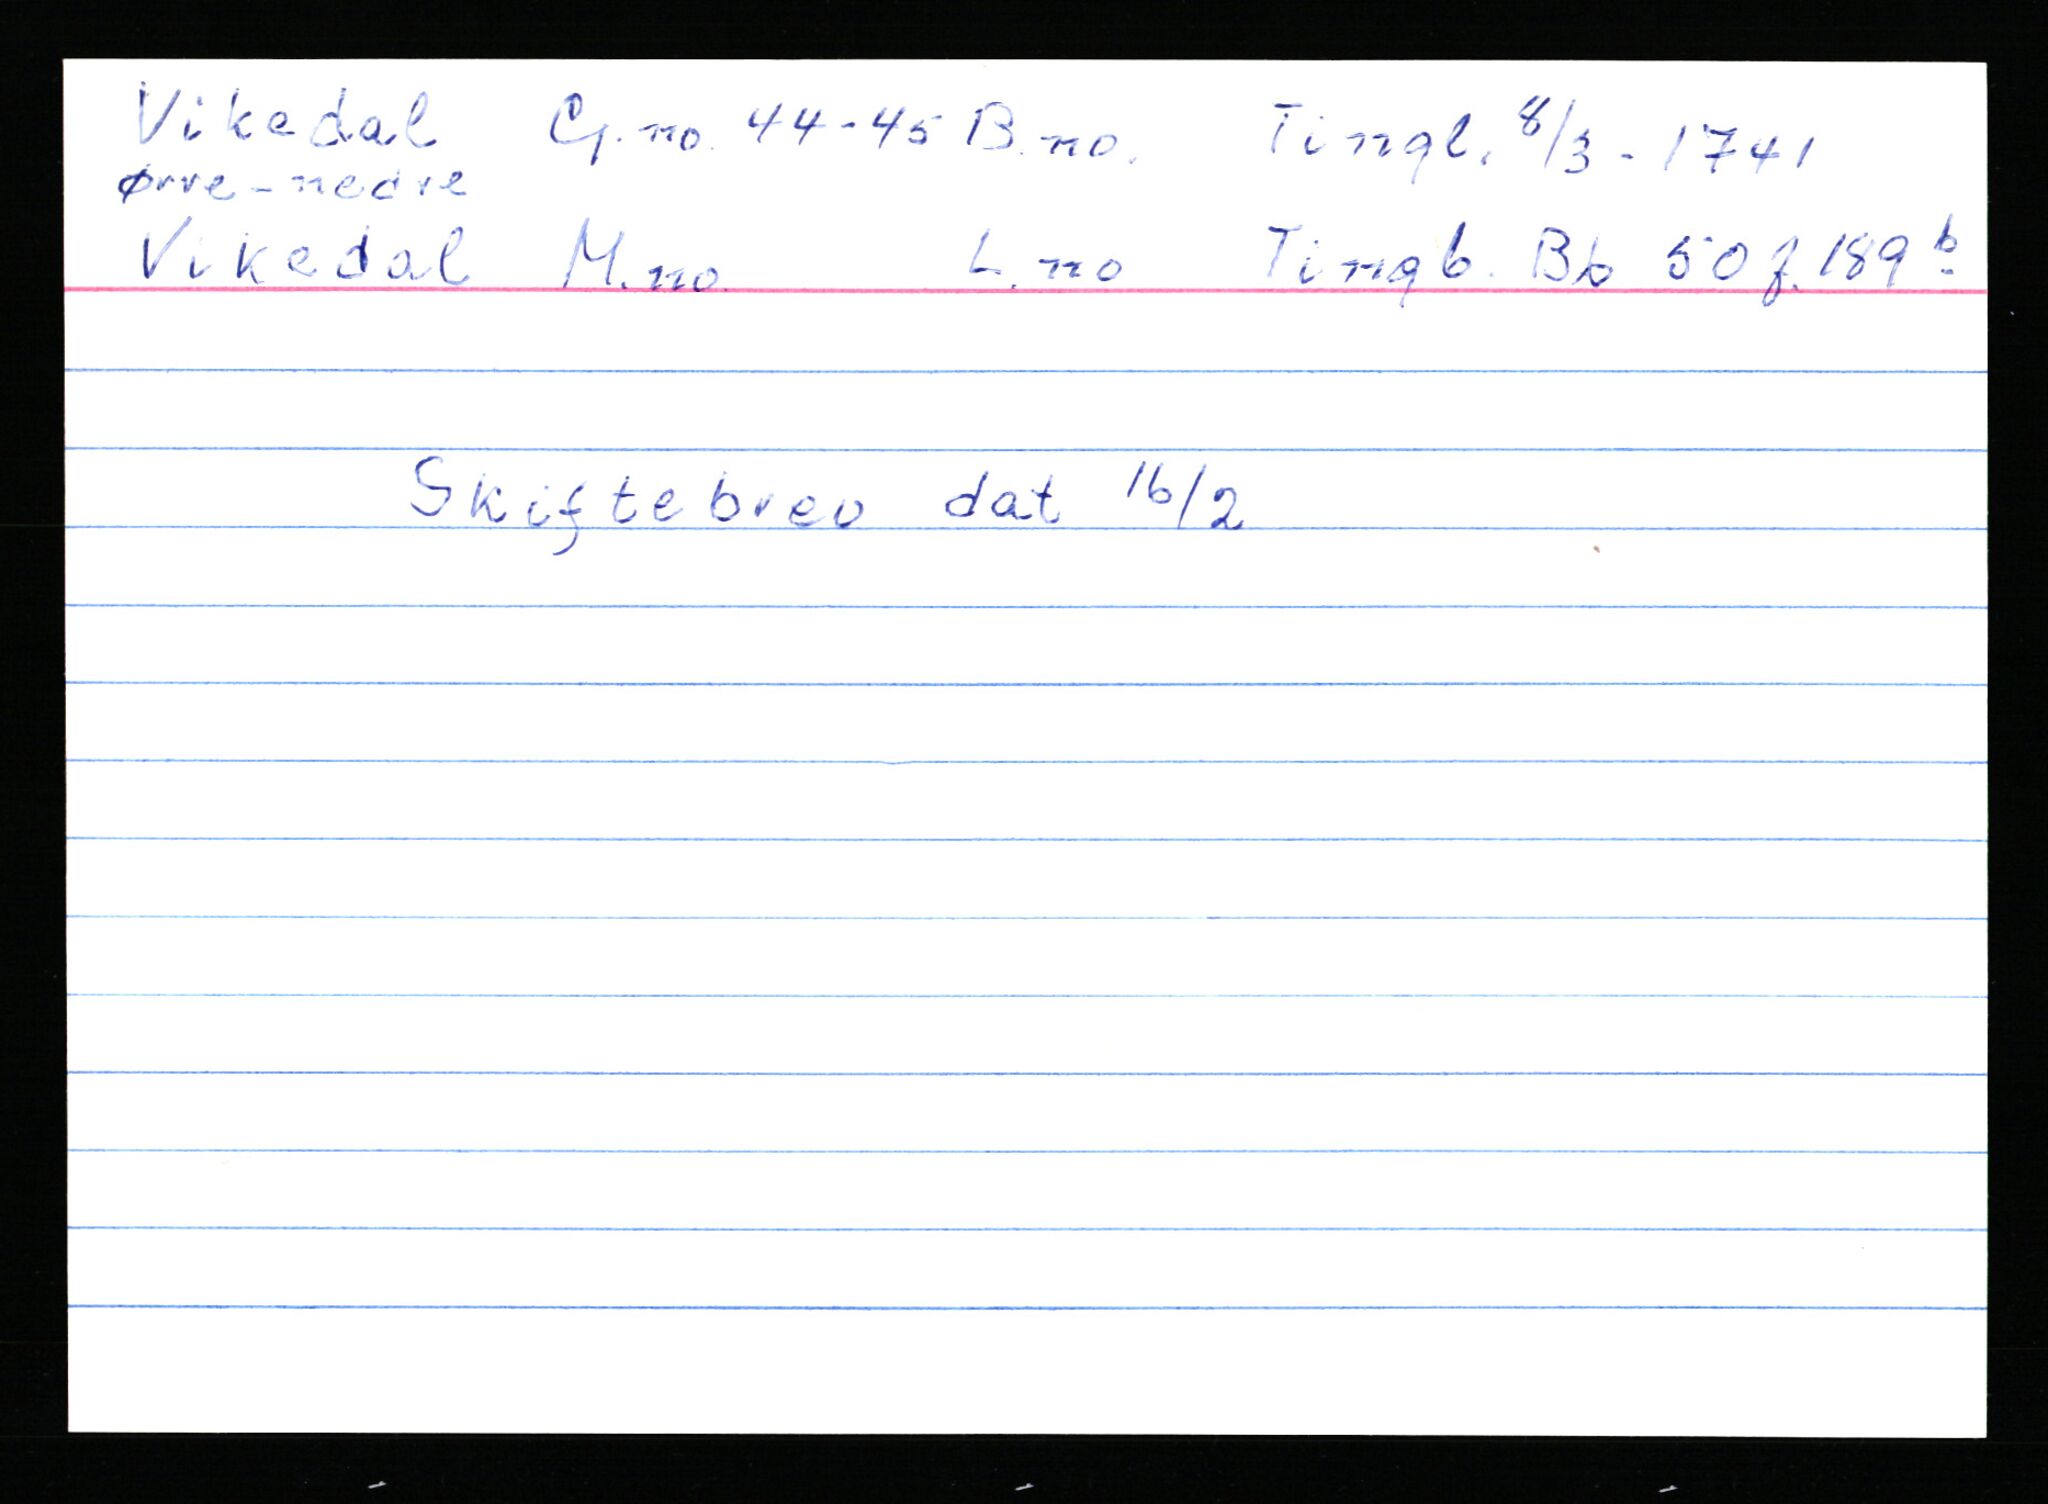 Vikedal G.no. 44-45 B.no. Tingl. 8/3-1741
Ørre-nedre
Vikedal M.no. L.no Tingb. Bb 50 f. 189 b
Skiftebrev dat 16/2